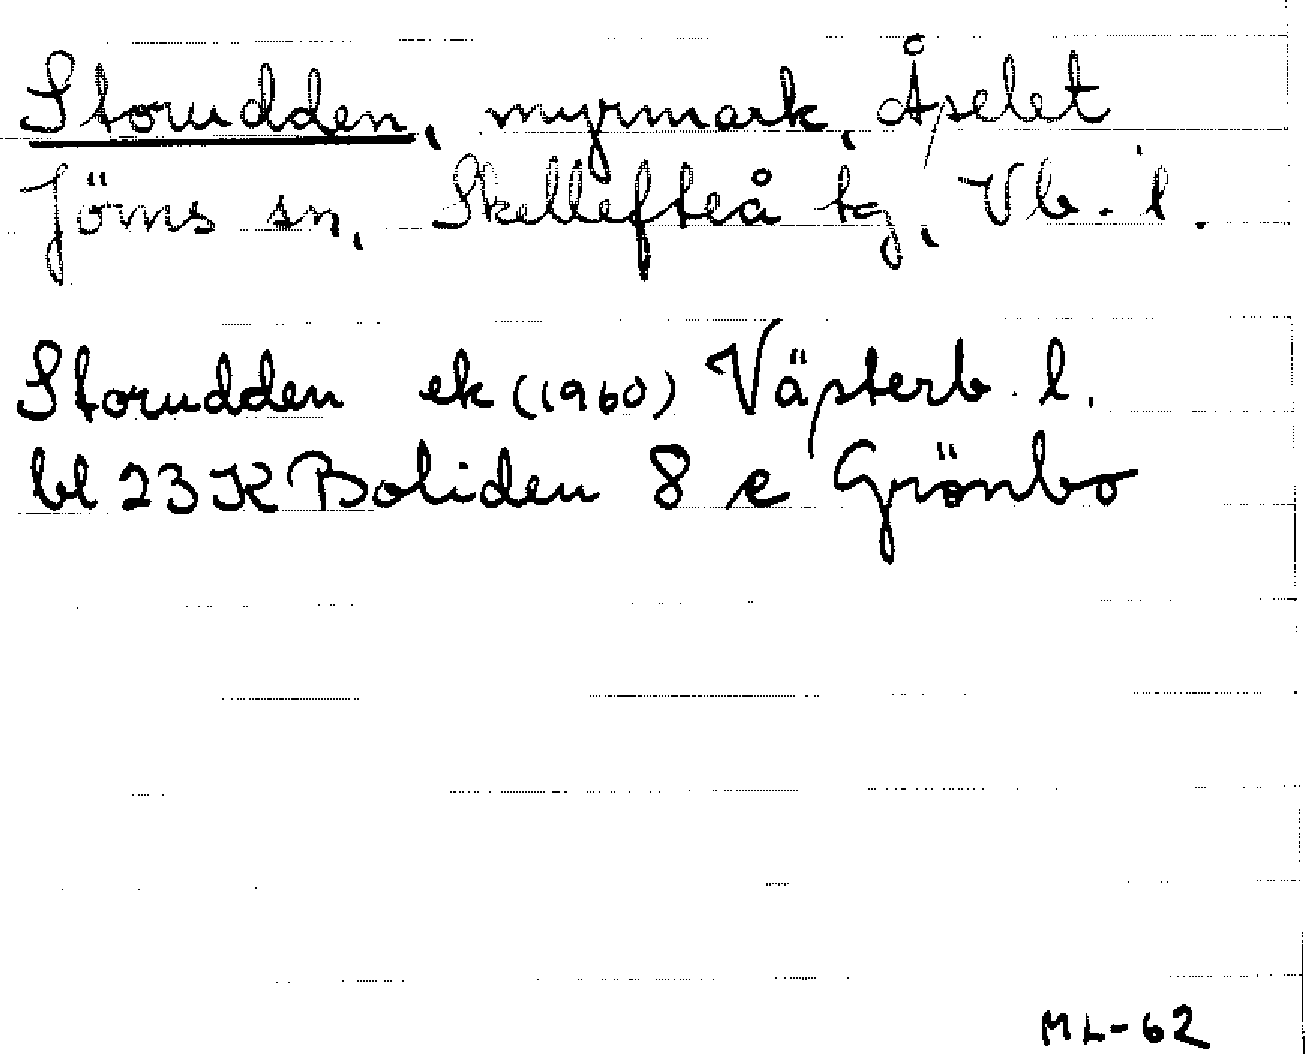 Storudden, myrmark, Åselet
Jörns sn, Skellefteå tg, Vb. l.
Storudden ek (1960) Västerb. l.
bl 23 K Boliden 8 e Grönbo
ML-62